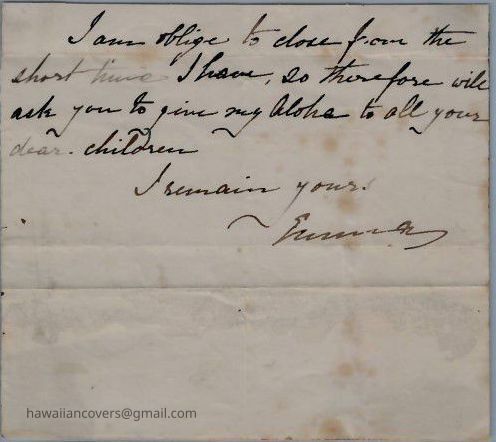 I am oblige to close from the
short time I have, so therefore will
ask you to give my Aloha to all your
dear children
I remain yours
Emma
hawaiiancovers@gmail.com